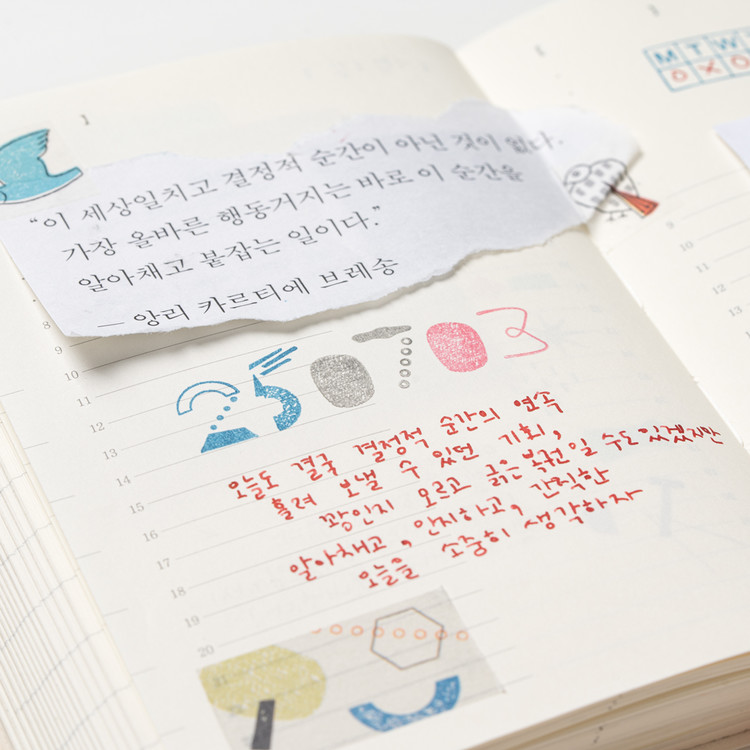 “이 세상일치고 결정적 순간이 아닌 것이 없다.
가장 올바른 행동거지는 바로 이 순간을
알아채고 붙잡는 일이다.”
— 앙리 카르티에 브레송
8
9
10
11
12
13
14
15
16
17
18
19
20
21
250703
오늘도 결국 결정적 순간의 연속
흘려 보낼 수 있던 기회,
꽝인지 모르고 긁은 복권일 수도있겠지만
알아채고, 인지하고, 간직한
오늘을 소중히 생각하자
M T W
O X O
9
10
11
12
13